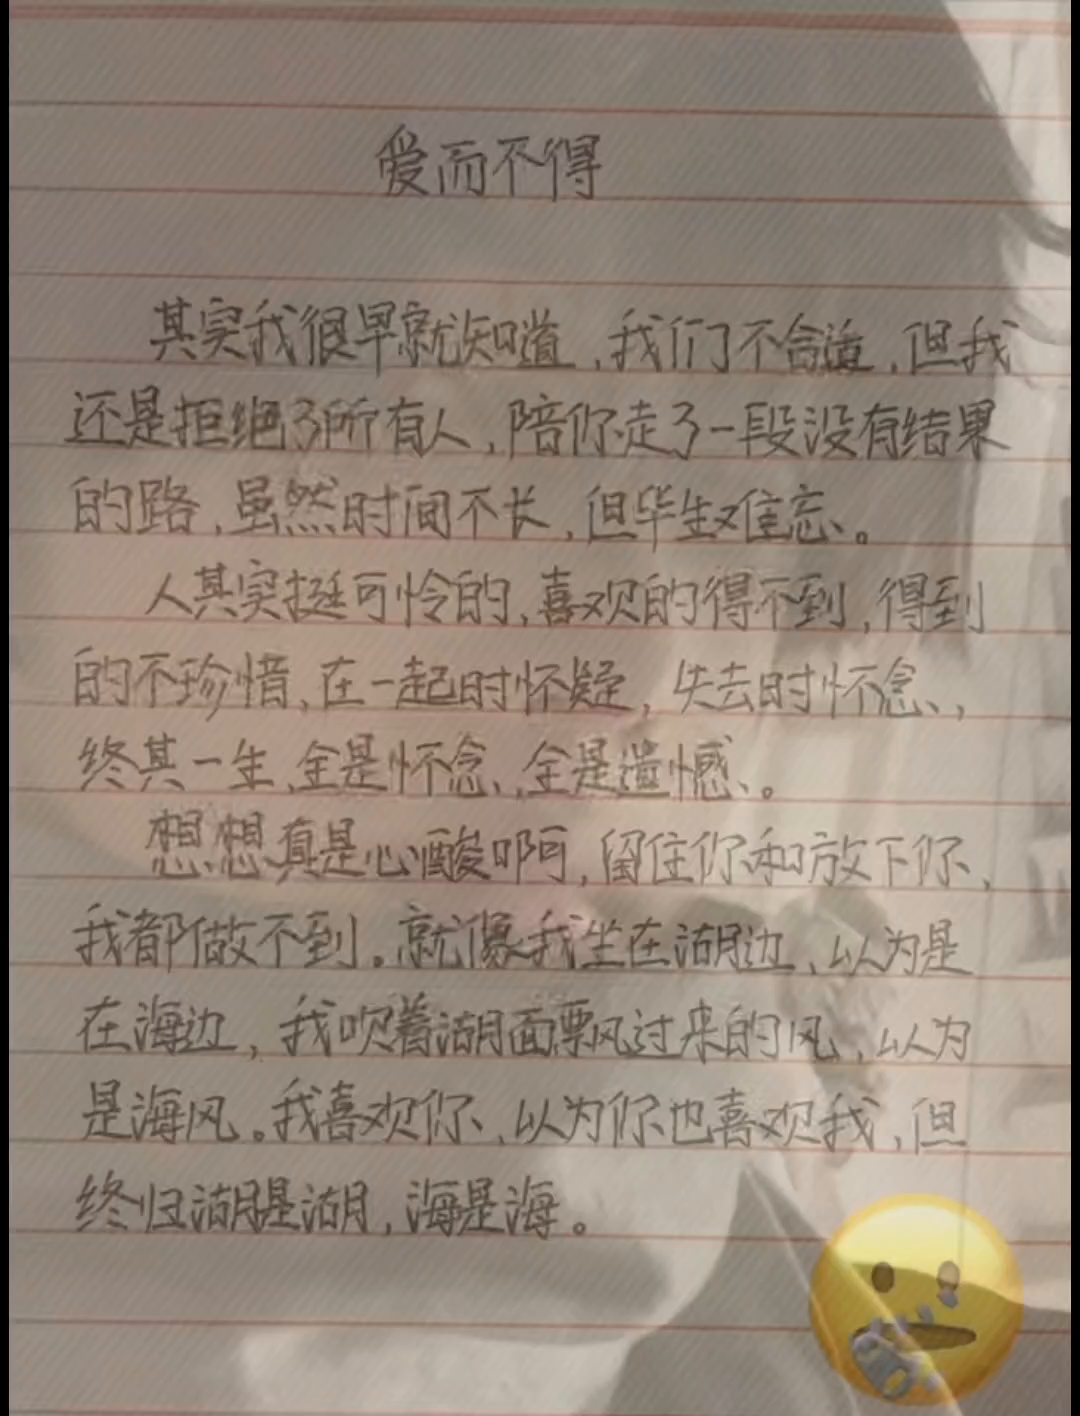 爱而不得
其实我很早就知道，我们不合适，但我
还是拒绝了所有人，陪你走了一段没有结果
的路，虽然时间不长，但毕生难忘。
人其实挺可怜的，喜欢的得不到，得到
的不珍惜，在一起时怀疑，失去时怀念，
终其一生，全是怀念，全是遗憾。
想想真是心酸啊，留住你和放下你，
我都做不到。就像我坐在湖边，以为是
在海边，我吹着湖面飘过来的风，以为
是海风。我喜欢你，以为你也喜欢我，但
终归湖是湖，海是海。